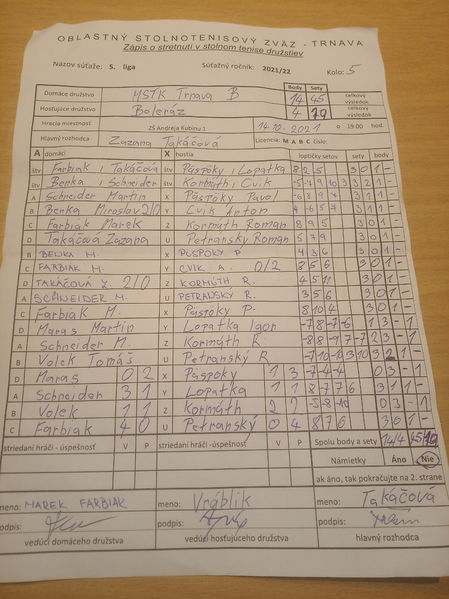 OBLASTNÝ STOLNOTENISOVÝ ZVÄZ - TRNAVA
Zápis o stretnutí v stolnom tenise družstiev
Názov súťaže: 5. liga Súťažný ročník: 2021/22 Kolo: 5
Body Sety
Domáce družstvo MSTK Trnava B 14 45 celkový výsledok
Hosťujúce družstvo Boleráz 4 19 celkový výsledok
Hracia miestnosť ZŠ Andreja Kubinu 1 14.10.2021 o 19:00 hod.
Hlavný rozhodca Zuzana Takáčová Licencia: M A B C číslo:
A domáci X hostia loptičky setov sety body
štv Farbiak i Takáčová štv Púspöky i Lopatka 8 2 5 3 0 1 -
štv Benka i Schneider štv Kormúth i Cvik
A Schneider Martin X Púspöky Pavol
B Benka Miroslav 2/0 Y Cvik Anton
C Farbiak Marek Z Kormúth Roman 8 9 5 3 0 1 -
D Takáčová Zuzana U Petranský Roman 5 7 9 3 0 1 -
B BENKA M. X PÚSPÖKY P. 4 3 6 3 0 1 -
C FARBIAK M. Y CVIK A. 0/2 8 5 6 3 0 1 -
D TAKÁČOVÁ Z. 2/0 Z KORMÚTH R. 4 5 11 3 0 1 -
A SCHNEIDER M. U PETRANSKÝ R. 3 5 6 3 0 1 -
C Farbiak M. X Púspöky P. 8 10 4 3 0 1 -
D Maras Martin Y Lopatka Igor -7 8 -7 -6 1 3 - 1
A Schneider M. Z Kormúth R
B Volek Tomáš U Petranský R
D Maras 0 2 X Púspöky 1 3 -7 -4 -4 0 3 - 1
A Schneider 3 1 Y Lopatka 1 1 8 -7 7 6 3 1 1 -
B Volek 1 1 Z Kormúth 2 -5 -8 -10 0 3 - 1
C Farbiak 4 0 U Petranský 0 4 8 7 6 3 0 1 -
striedaní hráči - úspešnosť V P striedaní hráči - úspešnosť V P Spolu body a sety 14/4 45/19
Námietky Áno Nie
ak áno, tak pokračujte na 2. strane
meno: MAREK FARBIAK meno: Vráblik meno: Takáčová
podpis: podpis: podpis:
vedúci domáceho družstva vedúci hosťujúceho družstva hlavný rozhodca